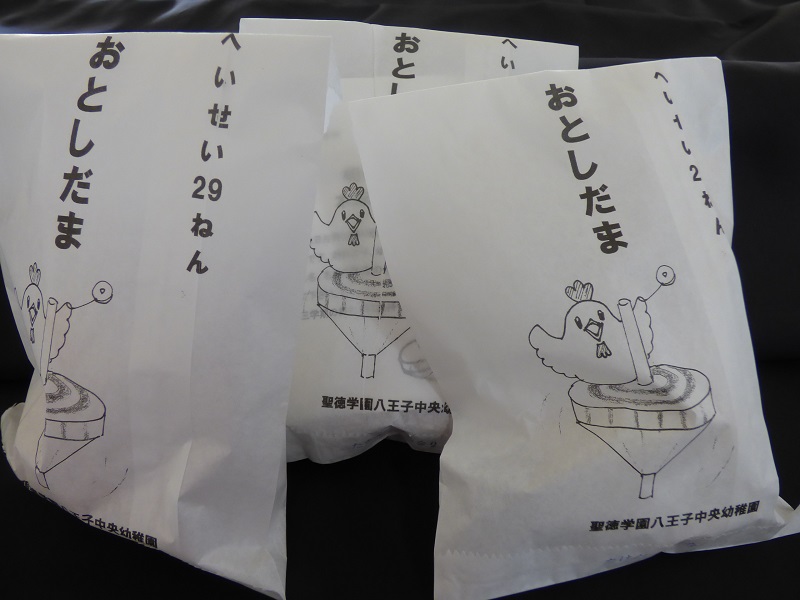 へいせい29ねん
おとしだま
王子中央幼稚園
へい
おとし
聖徳学園八王子中央幼
へいせい2ねん
おとしだま
聖徳学園八王子中央幼稚園